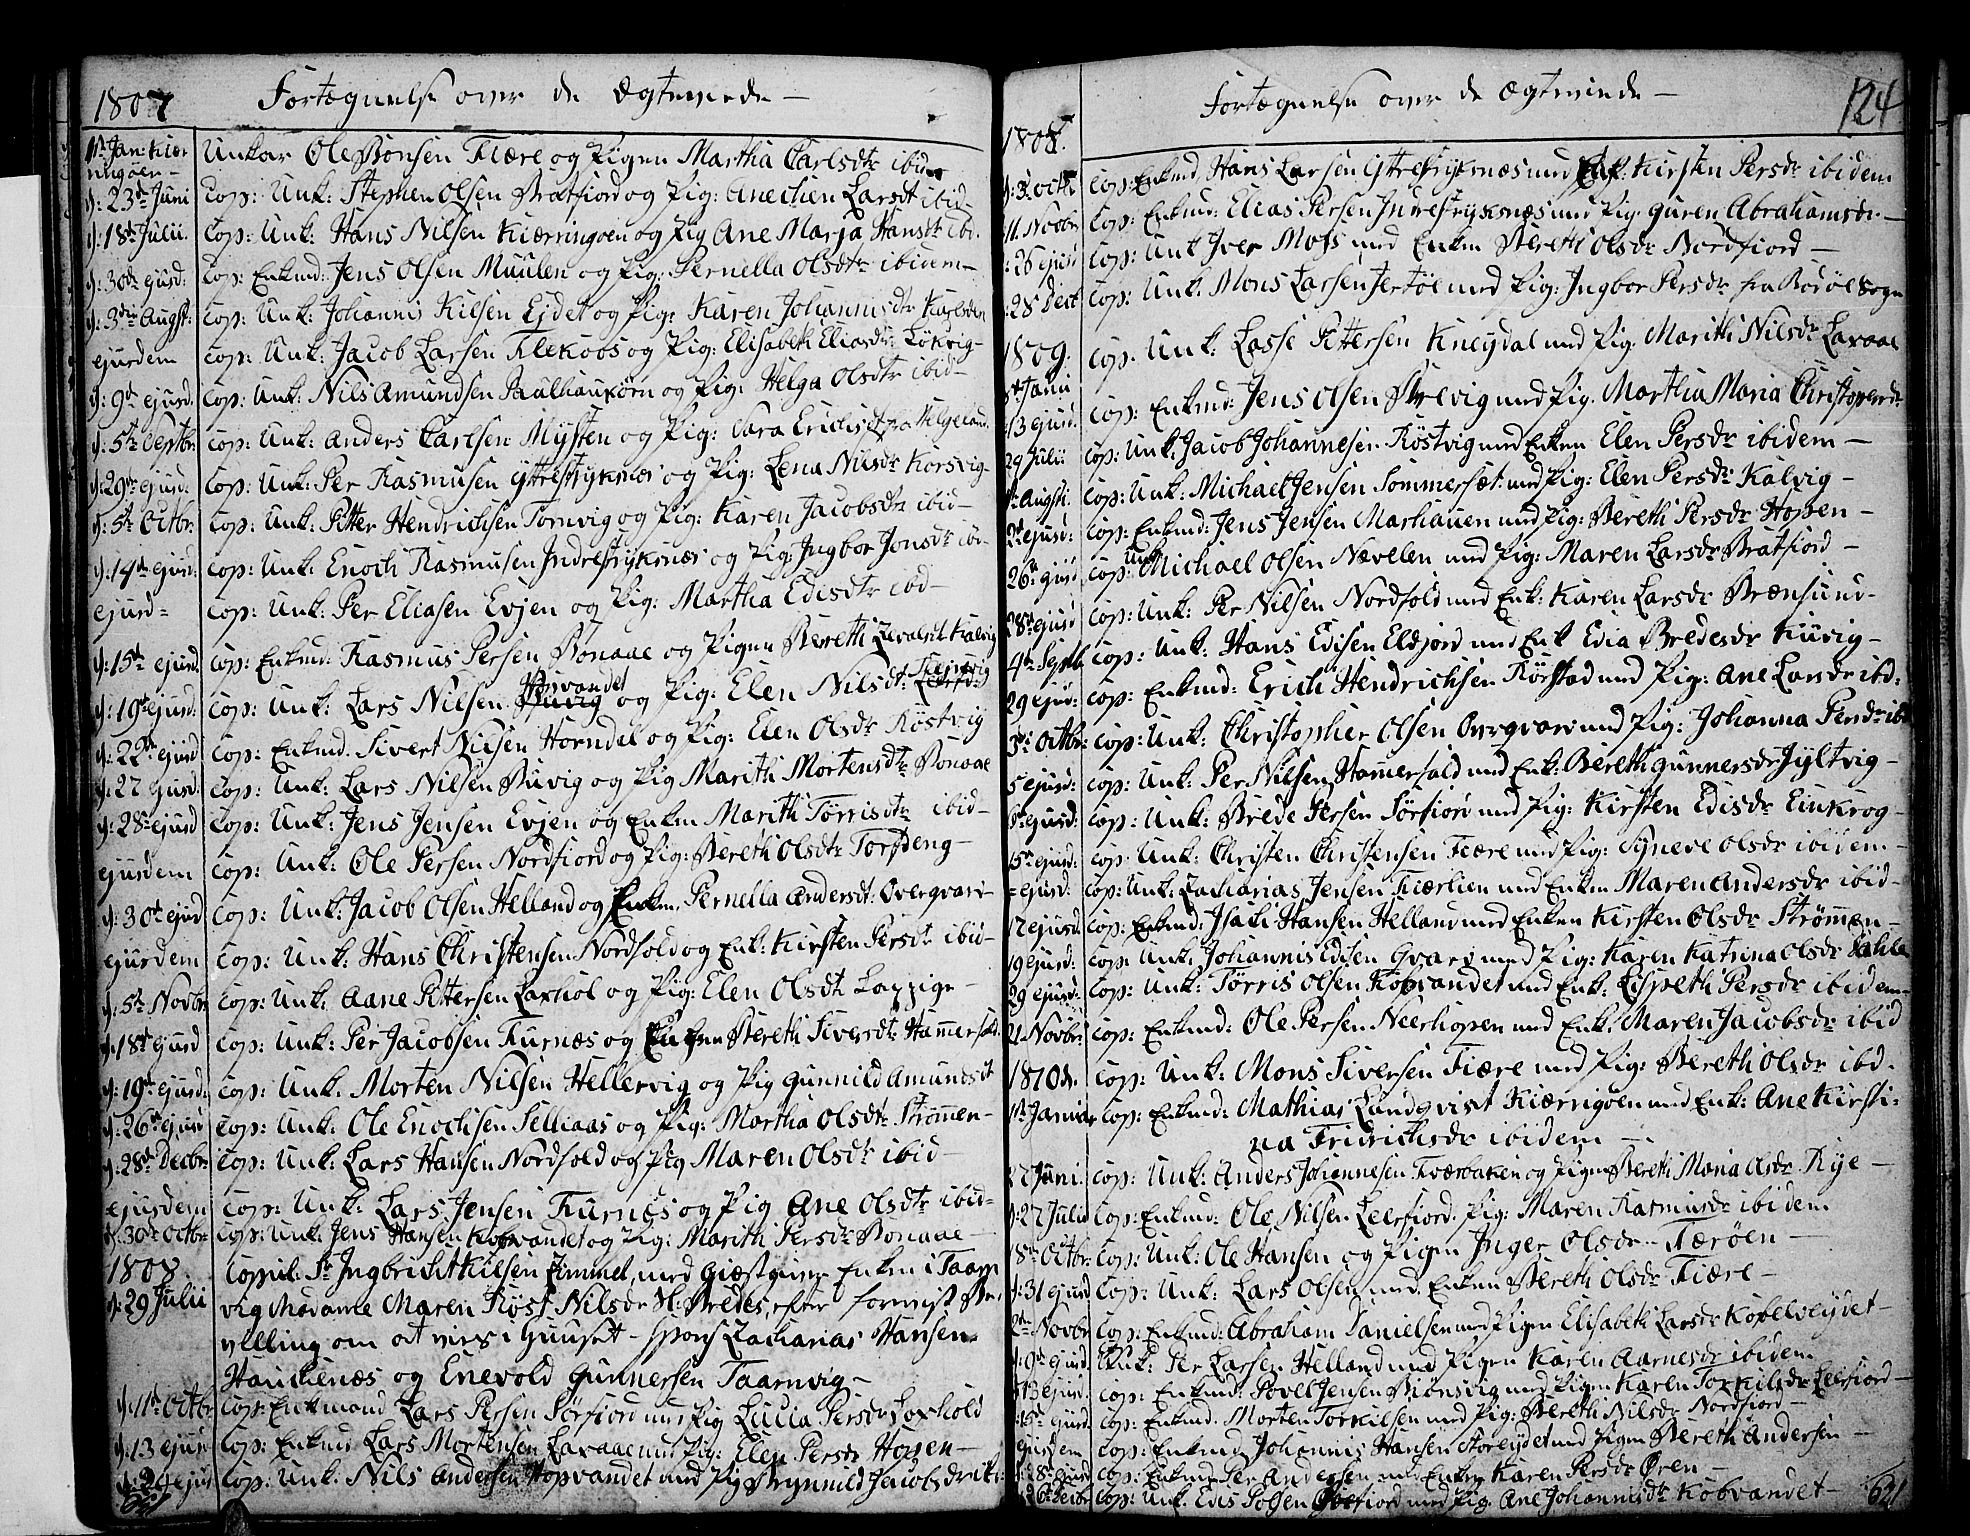 1807 Fortegnelse over de Ægteviede —
1te Jan: Kier
ringøen — Unkar Ole Bonsen Fiære og Pigen Martha Carlsdtr ibidem
d: 23de Juni Cop: Unk: Stephen Olsen Bratfiord og Pig: Anechen Larsdt ibid —
d: 18de Julii. Cop: Unk: Hans Nilsen Kierringøen og Pig Ane Marja Hansdtr ibi.
d: 30de ejusd: Cop: Enkmd: Jens Olsen Muulen og Pig: Pernella Olsdtr ibidem —
d: 3die Augst: Cop: Unk: Johannis Kilsen Ejdet og Pig: Karen Johannisdtr Karlsøen
ejusdem Cop: Unk: Jacob Larsen Flekoos og Pig: Elisabeth Eliasdtr: Løkvig —
d: 9de ejusd. Cop: Unk: Nils Amundsen og Pig: Helga Olsdtr ibid —
d: 5te Septbr: Cop: Unk: Anders Carlsen Mysten og Pig: Sara Erichsdt fra Helgeland.
d: 29de ejusd: Cop: Unk: Per Rasmusen Yttrestryksnæs og Pig: Lena Nilsdr Korsvig —
d: 5te Octbr: Cop: Unk: Pitter Hendrichsen Tornvig og Pig: Karen Jacobsdtr ibid —
d: 14de ejusd: Cop: Unk: Enoch Rasmusen Indrestryksnæs og Pig: Ingbor Jonsdtr ibi —
ejusd — Cop: Unk: Per Eliasen Evjen og Pig: Martha Edisdtr ibd —
d: 15de ejusd. Cop: Enkmd: Rasmus Persen Bonaae og Pigen Bereth Zevalsdt Kalvig
d: 19de ejusd: Cop: Unk: Lars Nilsen Hopvandet og Pig: Elen Nilsdt:
d: 22de ejusd Cop: Enkmd. Sivert Nilsen Horndal og Pig: Elen Olsdtr Røstvig
d: 27 ejusd. Cop: Unk: Lars Nilsen Buvig og Pig Marith Mortensdtr Bonaae
d: 28de ejusd Cop: Unk: Jens Jensen Evjen og Enken Marith Tørrisdtr ibid —
ejusdem Cop: Unk: Ole Persen Nordfiord og Pig: Bereth Olsdtr Torsdeng —
d: 30te ejusd Cop: Unk: Jacob Olsen Helland og Enken Pernella Andersdt: Overgvarv —
ejusdem Cop: Unk: Hans Christensen Nordfold og Enk: Kirsten Persdtr ibid —
d: 5te Novbr Cop: Unk: Aane Pittersen Laxhol og Pig: Elen Olsdt Lappige —
d: 18de ejusd Cop: Unk: Per Jacobsen Furnæs og Enken Bereth Siversdtr Hammerfald.
d: 19de ejusd: Cop: Unk: Morten Nilsen Hellervig og Pig Gunnild Amundsdt
d: 26de ejusd Cop: Unk: Ole Enochsen Selliaas og Pig: Martha Olsdtr Strømmen —
d: 28de Decbr: Cop: Unk: Lars Hansen Nordfold og Pig Maren Olsdtr ibid —
ejusdem Cop: Unk: Lars Jensen Furnes og Pig Ane Olsdtr ibid —
d. 30de Octbr Cop: Unk: Jens Hansen Kobvandet og Pig: Marith Persdtr Bonaae —
1808
d: 29 Julii Copul. Sr Ingbricht Kilsen Zimmel, med Giestgiver Enken i Taarn
vig Madame Maren Røst Nilsdr Sl: Bredes, efter
villing om at vies i Huuset — Spons Zacharias Hansen
Hauchenæs og Enevold Gunnersen Taarnvig —
d: 11te Octbr Cop: Enkmand Lars Persen Sørfiord med Pig Lucia Persdr Laxhold
d: 13 ejusd Cop: Enkmd Lars Mortensen Laxaae med Pig: Elen Persdr Hopen —
d: 24 ejusd Cop: Unk: Nils Andersen Hopvandet med Pig Brynnild Jacobsdr
Fortegnelse over de Ægteviede — 124
1808.
d: 3 Octb Cop: Enkmd, Hans Larsen Yttrestryksnæs med Enk. Kirsten Persdr ibidem
11. Novbr Cop: Enkmd: Elias Persen Indrestryksnæs med Pig: Guren Abrahamsdr. —
26 ejusd Cop: Unk Iver Mons med Enken Bereth Olsdr Nordfiord —
28 Decb Cop: Unk: Mons Larsen med Pig: Ingbor Persdr fra Bodøe Sogn
1809.
5te Janu Cop. Unk: Lasse Pittersen Kneydal med Pig. Marith Nilsdr Laxaae
13 ejusd. Cop: Enkmd: Jens Olsen med Pig. Martha Maria Christophersdr
29 Julii Cop: Unk: Jacob Johannesen Røstvig med Enken Elen Persdr ibidem —
1te Augsti. Cop: Unk: Michael Jensen Sommersæt med Pig: Elen Persdr Kalvig —
2de ejusd: Cop: Enkmd: Jens Jensen Marhauen med Pig: Bereth Persdr Hopen —
26de ejusd Cop: Unk Michael Olsen Nævelen med Pig: Maren Larsdr Bratfiord —
28de ejusd Cop: Unk: Per Nilsen Nordfold med Enk: Karen Larsdr Brænsund —
4de Septb. Cop: Unk: Hans Edisen Eldjord med Enk Edia Bredesdr Kuvig —
29 ejusd: Cop: Enkmd: Erich Hendrichsen Rørstad med Pig: Ane Larsdr ibd:
3de Octbr: Cop: Unk: Christopher Olsen Overgvarv med Pig: Johanna Persdr ibd
5 ejusd: Cop: Unk: Per Nilsen Hamerfald med Enk: Bereth Gunnersdr Jyltvig —
6te ejusd: Cop: Unk: Brede Persen Sørfiord med Pig: Kirsten Edisdr Einkrog —
15de ejusd: Cop: Unk: Christen Christensen Fiære med Pig: Syneve Olsdr ibidem —
— ejusd: Cop: Unk: Zacharias Jensen Fiærlien med Enken Maren Andersdr ibid —
17 ejusd Cop: Enkmd: Isach Hansen Helland med Enken Kirsten Olsdr Strømmen —
19 ejusd: Cop: Unk: Johannis Edisen Gvarv med Pig: Karen Katrina Olsdr
29 ejusd: Cop: Unk: Tørris Olsen Kobvandet med Enk: Lispeth Persdr ibidem —
21 Novbr Cop: Enkmd: Ole Persen Neerhopen med Enk: Maren Jacobsdr ibid
1810. Cop: Unk: Mons Siversen Fiære med Pig: Bereth Olsdr ibd.
1te Januar Cop: Enkmd: Mathias Lundqvist Kiærrigøen med Enk: Ane Kirsti-
na Fridrichsdr ibidem —
27 Juni. Cop: Unk: Anders Johannesen Tværbaken og Pigen Bereth Maria Olsdr Kije —
d: 27 Julii Cop: Enkmd: Ole Nilsen Leerfiord. Pig: Maren Rasmusdr ibidem
18de Octbr: Cop: Unk: Ole Hansen og Pigen Inger Olsdr — Færøen —
d: 31 ejusd Cop: Unk: Lars Olsen med Enken Bereth Olsdr Fiære —
2de Novbr Cop: Enkmd: Abraham Danielsen med Pigen Elisabeth Larsdr Kobelveydet —
d: 9de ejusd. Unk: Per Larsen Helland med Pigen Karen Aarnesdr ibidem
d: 13 ejusd. Cop: Enkmd: Povel Jensen Biønsvig med Pigen Karen Torkilsdr Leerfiord —
d: 15de ejusd Cop: Enkmd: Morten Torkilsen med Pig: Bereth Nilsdr Nordfiord —
ejusdem Cop: Enkmd Johannis Hansen Storeydet med Pigen Bereth Andersen —
d: 28de ejusd Cop: Enkmd Per Andersen med Enken Karen Persdr Øren —
d: 26 Decbr Cop: Unk: Edis Polsen med Pig. Ane Johannisdtr Kobvandet — 621